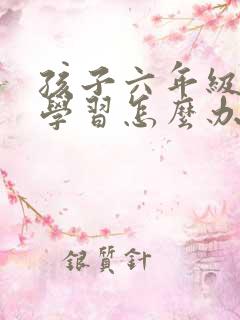 孩子六年級
學習怎麼办
銀質針